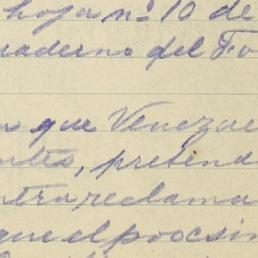 hoja nº 10 de
uaderno del Fo
que Venezue
ntes, pretend
ntra reclama
que el procsim